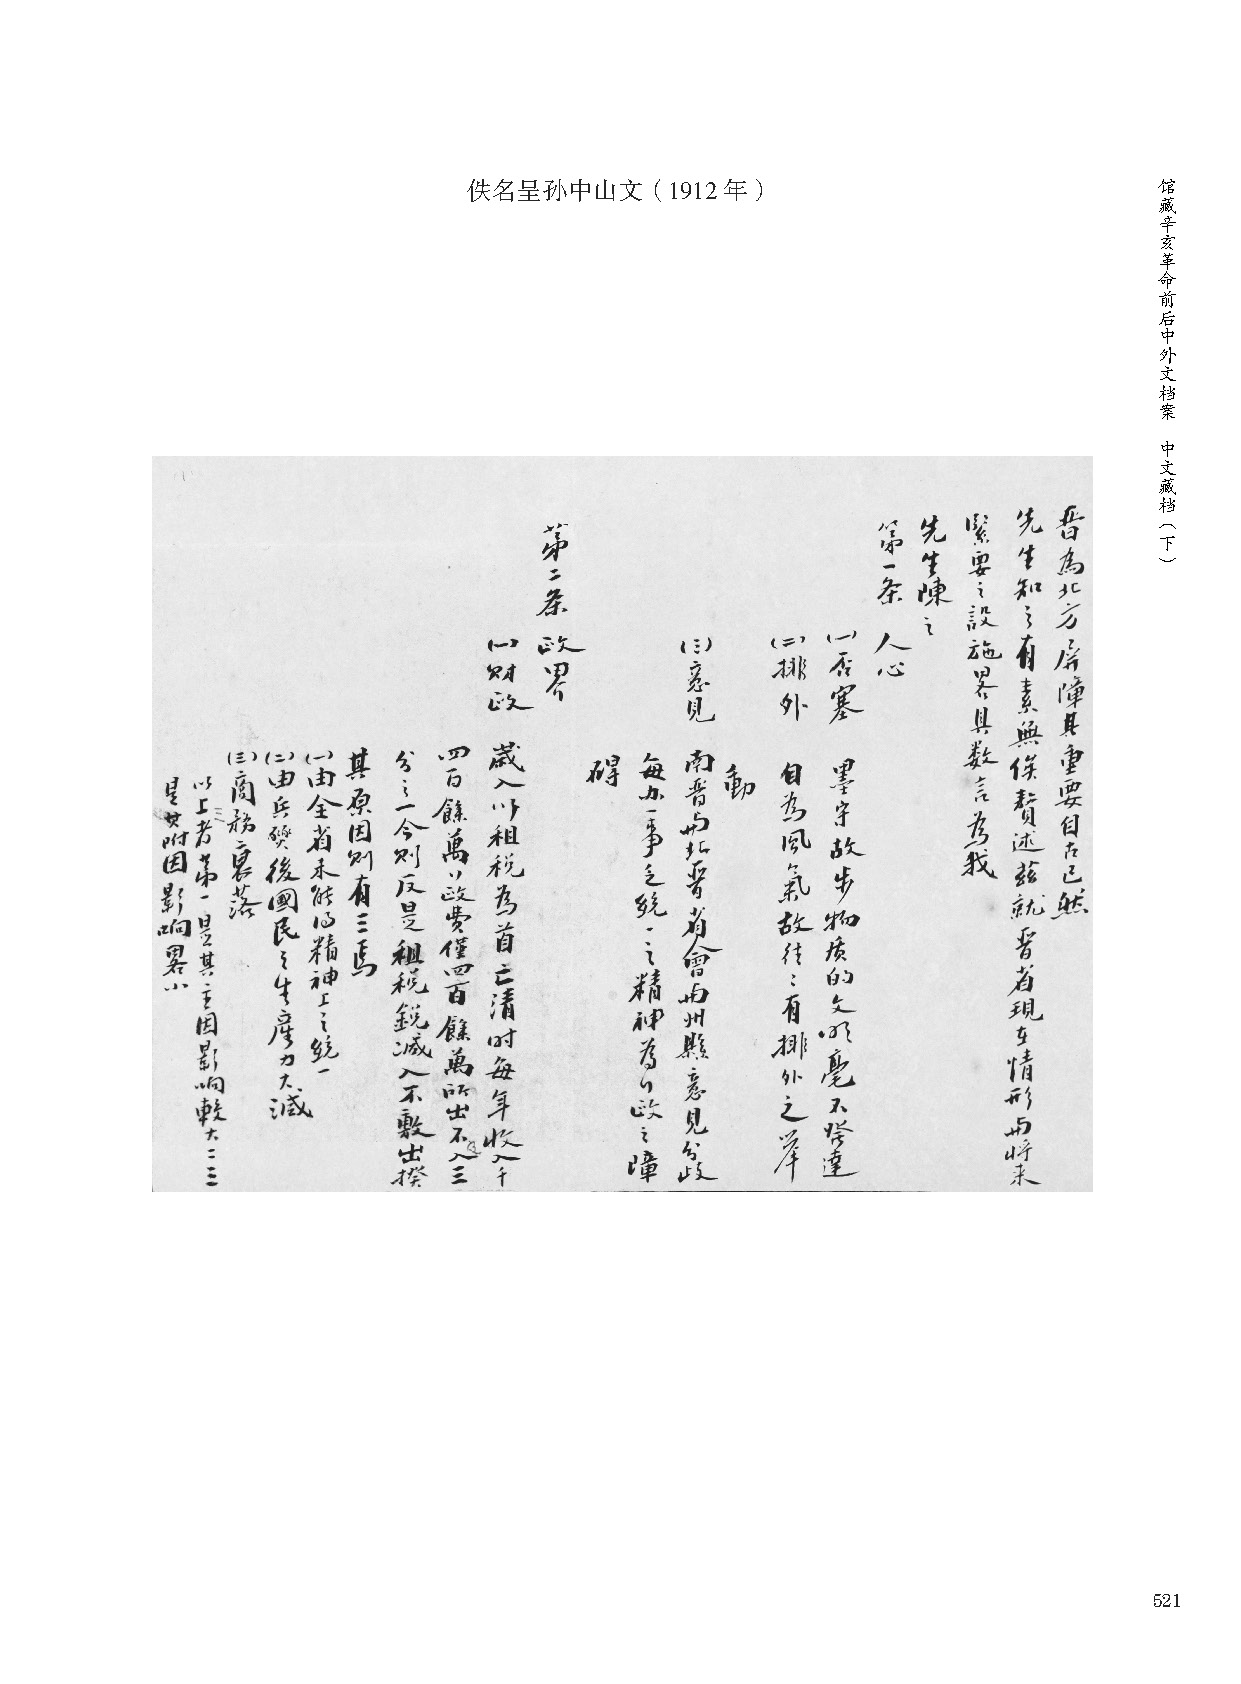 佚名呈孙中山文（1912年）
馆藏辛亥革命前后中外文档案　中文藏档（下）
晋為北方屏障其重要自古已然
先生知之有素無俟贅述茲就晋省現在情形与将来
緊要之設施畧具数言為我
先生陳之
第一条　人心
(一)否塞　墨守故步物质的文明毫不發達
(二)排外　自為風氣故往々有排外之举
動
(三)意見　南晋与北晋省會与州縣意見分歧
每办一事乏统一之精神為行政之障
碍
第二条　政界
(一)财政　歲入以租税為首亡清时每年收入千
四百餘萬行政費僅四百餘萬所出不及入三
分之一今则反是租税锐減入不敷出揆
其原因则有三焉
(一)由全省未能得精神上之统一
(二)由兵燹後國民之生産力大減
(三)商務衰落
以上三者第一是其主因影响較大二三
是其附因影响畧小
521